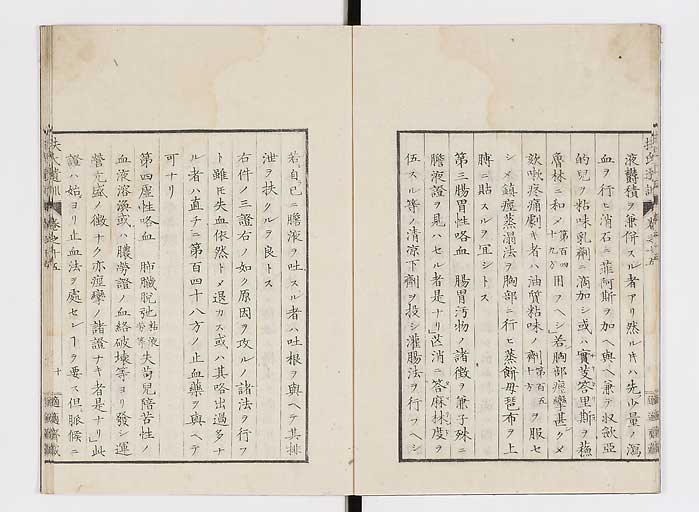 液欝積ヲ兼併スル者アリ然ルキハ先少量ノ瀉
血ヲ行ヒ消石ニ菲阿斯ヲ加ヘ與ヘ兼テ収歛亞
的児ヲ粘味乳劑ニ滴加シ或ハ實芰答里斯ヲ蕪
魯林ニ和メ第百四十九方用フヘシ若胸部痙攣甚クメ
欬嗽疼痛劇キ者ハ油質粘味ノ劑第百五十方ヲ服セ
シメ鎮痙蒸溻法ヲ胸部ニ行ヒ蒸餅毋琶布ヲ上
脾ニ貼スルヲ冝シトス
第三腸胃性咯血 腸胃汚物ノ諸徴ヲ兼子殊ニ
膽液證ヲ見ハセル者是ナリ芒消ニ答麻林度ヲ
伍スル等ノ清涼下劑ヲ投シ灌腸法ヲ行フヘシ
若自已ニ膽液ヲ吐スル者ハ吐根ヲ與ヘテ其排
泄ヲ扶クルヲ良トス
右件ノ三證右ノ如ク原因ヲ攻ルノ諸法ヲ行フ
ト雖𪜈失血依然トメ退カス或ハ其咯出過多ナ
ル者ハ直チニ第百四十八方ノ止血藥ヲ與ヘテ
可ナリ
第四虚性咯血 肺臓脱弛粘液分寡失荀児陪苦性ノ
血液溶渙或ハ膿勞證ノ血絡破壊等ヨリ發シ運
營亢盛ノ徴ナク亦痙攣ノ諸證ナキ者是ナリ此
證ハ始ヨリ止血法ヲ處セシヿヲ要ス但脈候ニ
扶氏遺訓 卷之十五 十 適適齋藏